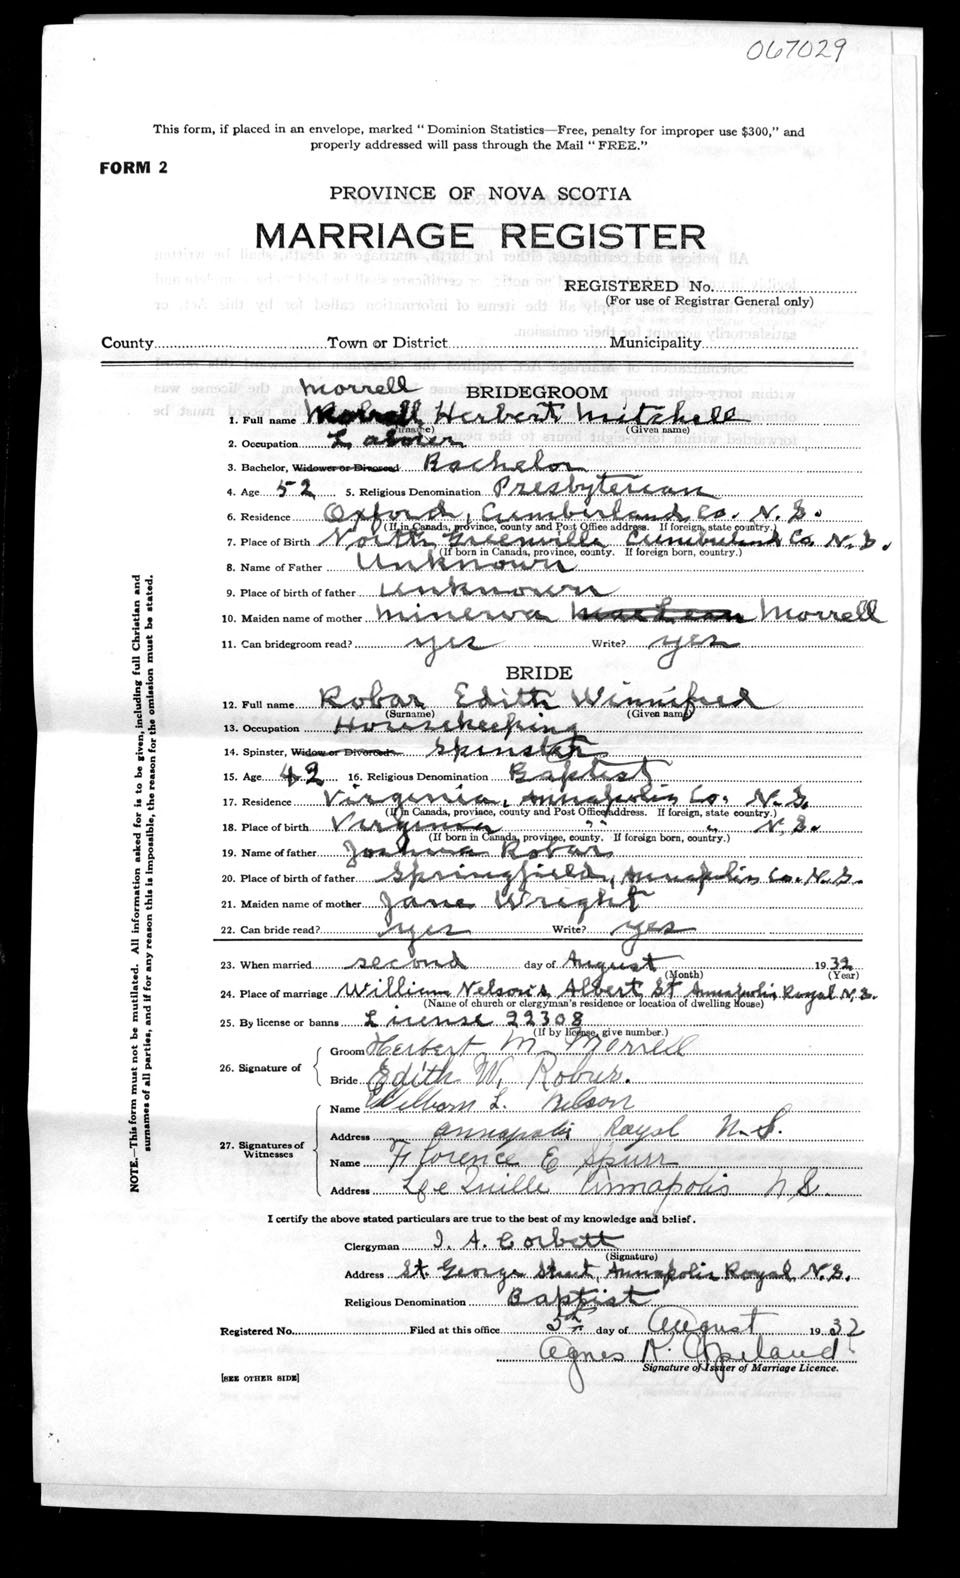 067029
This form, if placed in an envelope, marked " Dominion Statistics—Free, penalty for improper use $300," and
properly addressed will pass through the Mail " FREE."
FORM 2
PROVINCE OF NOVA SCOTIA
MARRIAGE REGISTER
REGISTERED No.
(For use of Registrar General only)
County Town or District Municipality
BRIDEGROOM
Morrell
1. Full name Herbert Mitchell
(Surname) (Given name)
2. Occupation Laborer
3. Bachelor, Widower or Divorced Bachelor
4. Age 52 5. Religious Denomination Presbyterian
6. Residence Oxford, Cumberland Co. N.S.
(If in Canada, province, county and Post Office address. If foreign, state country.)
7. Place of Birth North Greenville Cumberland Co N.S.
(If born in Canada, province, county. If foreign born, country.)
8. Name of Father Unknown
9. Place of birth of father Unknown
10. Maiden name of mother Minerva Morrell
11. Can bridegroom read? yes Write? yes
BRIDE
12. Full name Robar Edith Winnifred
(Surname) (Given name)
13. Occupation Housekeeping
14. Spinster, Widow or Divorced Spinster
15. Age 42 16. Religious Denomination Baptist
17. Residence Virginia, Annapolis Co. N.S.
(If in Canada, province, county and Post Office address. If foreign, state country.)
18. Place of birth Virginia " " N.S.
(If born in Canada, province, county. If foreign born, country.)
19. Name of father Joshua Robar
20. Place of birth of father Springfield, Annapolis Co. N.S.
21. Maiden name of mother Jane Wright
22. Can bride read? yes Write? yes
23. When married second day of August 1932
(Month) (Year)
24. Place of marriage William Nelson's Albert St Annapolis Royal N.S.
(Name of church or clergyman's residence or location of dwelling house)
25. By license or banns License 22308
(If by license, give number.)
26. Signature of
Groom Herbert M. Morrell
Bride Edith W. Robar.
27. Signatures of Witnesses
Name L. Nelson
Address Annapolis Royal N.S.
Name Florence E Spurr
Address Lequille Annapolis N S.
I certify the above stated particulars are true to the best of my knowledge and belief.
Clergyman I. A. Corbett
(Signature)
Address St. George Street, Annapolis Royal N.S.
Religious Denomination Baptist
Registered No. Filed at this office 5th day of August 1932
Agnes Copeland
Signature of Issuer of Marriage Licence.
[SEE OTHER SIDE]
NOTE.—This form must not be mutilated. All information asked for is to be given, including full Christian and
surnames of all parties, and if for any reason this is impossible, the reason for the omission must be stated.